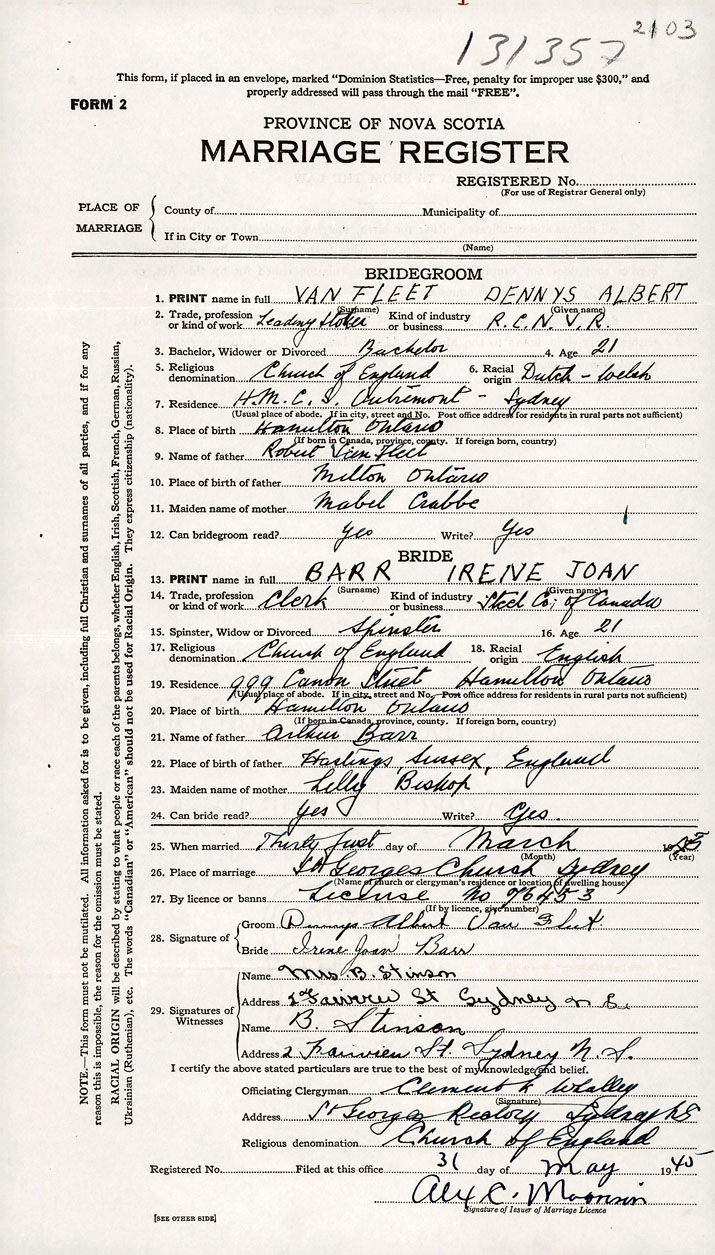 2103
131357
This form, if placed in an envelope, marked "Dominion Statistics—Free, penalty for improper use $300," and
properly addressed will pass through the mail "FREE".
FORM 2
PROVINCE OF NOVA SCOTIA
MARRIAGE REGISTER
REGISTERED No.
(For use of Registrar General only)
PLACE OF MARRIAGE
County of Municipality of
If in City or Town
(Name)
BRIDEGROOM
1. PRINT name in full VAN FLEET DENNYS ALBERT
(Surname) (Given name)
2. Trade, profession or kind of work Leading Stoker Kind of industry or business R.C.N.V.R.
3. Bachelor, Widower or Divorced Bachelor 4. Age 21
5. Religious denomination Church of England 6. Racial origin Dutch - Welsh
7. Residence H.M.C.S. Outremont - Sydney
(Usual place of abode. If in city, street and No. Post office address for residents in rural parts not sufficient)
8. Place of birth Hamilton Ontario
(If born in Canada, province, county. If foreign born, country)
9. Name of father Robert Van Fleet
10. Place of birth of father Milton Ontario
11. Maiden name of mother Mabel Crabbe
12. Can bridegroom read? Yes Write? Yes
BRIDE
13. PRINT name in full BARR IRENE JOAN
(Surname) (Given name)
14. Trade, profession or kind of work Clerk Kind of industry or business Steel Co; of Canada
15. Spinster, Widow or Divorced Spinster 16. Age 21
17. Religious denomination Church of England 18. Racial origin English
19. Residence 999 Canon Street Hamilton Ontario
(Usual place of abode. If in city, street and No. Post office address for residents in rural parts not sufficient)
20. Place of birth Hamilton Ontario
(If born in Canada, province, county. If foreign born, country)
21. Name of father Arthur Barr
22. Place of birth of father Hastings, Sussex, England
23. Maiden name of mother Lilly Bishop
24. Can bride read? Yes Write? Yes.
25. When married Thirty first day of March 1945
(Month) (Year)
26. Place of marriage St Georges Church Sydney
(Name of church or clergyman's residence or location of dwelling house)
27. By licence or banns License No 96453
(If by licence, give number)
28. Signature of
Groom Dennys Albert Van Fleet
Bride Irene Joan Barr
29. Signatures of Witnesses
Name Mrs. B. Stinson
Address 2 Fairview St Sydney N S.
Name B. Stinson
Address 2 Fairview St. Sydney N. S.
I certify the above stated particulars are true to the best of my knowledge and belief.
Officiating Clergyman Clement Whalley
(Signature)
Address St Georges Rectory Sydney NS
Religious denomination Church of England
Registered No. Filed at this office 31 day of May 1945
Alex C.
Signature of Issuer of Marriage Licence
[SEE OTHER SIDE]
NOTE.—This form must not be mutilated. All information asked for is to be given, including full Christian and surnames of all parties, and if for any
reason this is impossible, the reason for the omission must be stated.
RACIAL ORIGIN will be described by stating to what people or race each of the parents belongs, whether English, Irish, Scottish, French, German, Russian,
Ukrainian (Ruthenian), etc. The words "Canadian" or "American" should not be used for Racial Origin. They express citizenship (nationality).